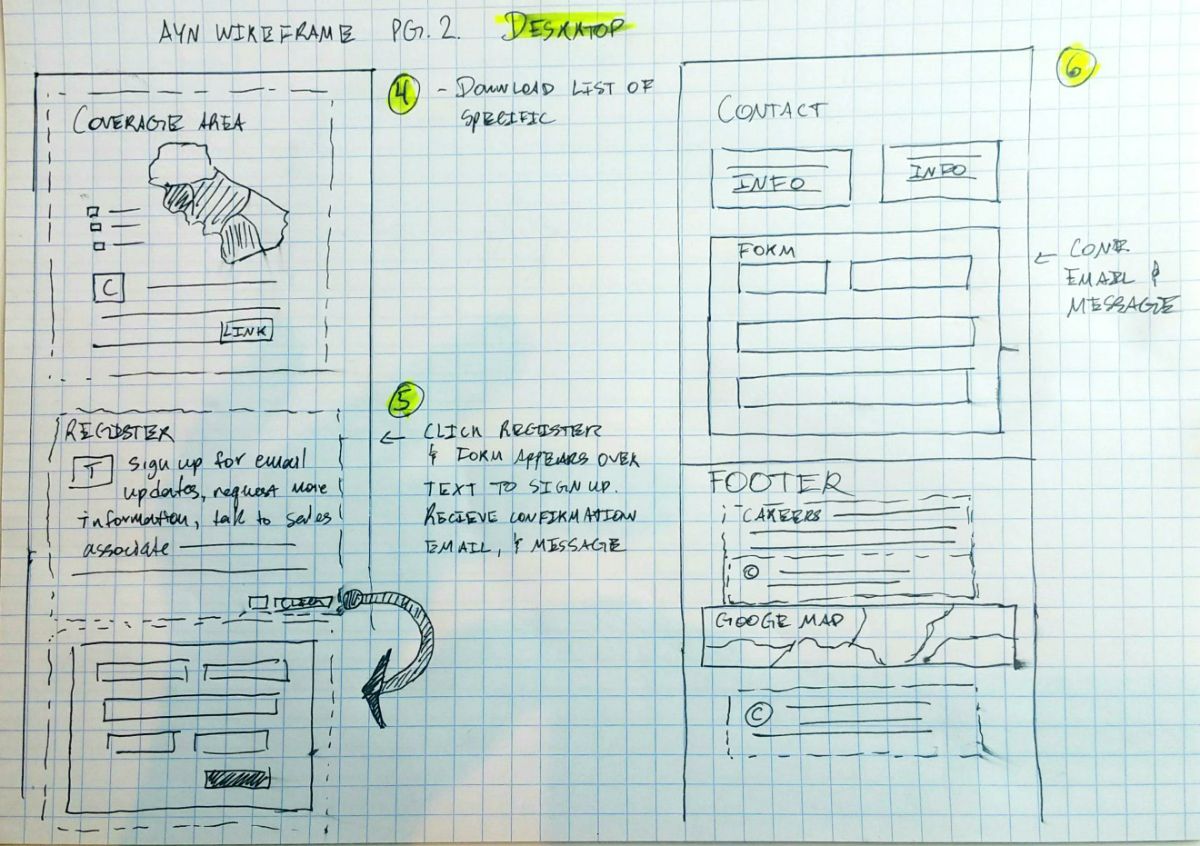 AYN WIREFRAME PG. 2. DESKTOP
COVERAGE AREA
C
LINK
4 - DOWNLOAD LIST OF
SPECIFIC
REGISTER
T Sign up for email
updates, request more
information, talk to sales
associate
5
← CLICK REGISTER
& FORM APPEARS OVER
TEXT TO SIGN UP.
RECIEVE CONFIRMATION
EMAIL, & MESSAGE
6
CONTACT
INFO
INFO
FORM
← CONF
EMAIL &
MESSAGE
FOOTER
CAREERS
©
GOOGE MAP
©